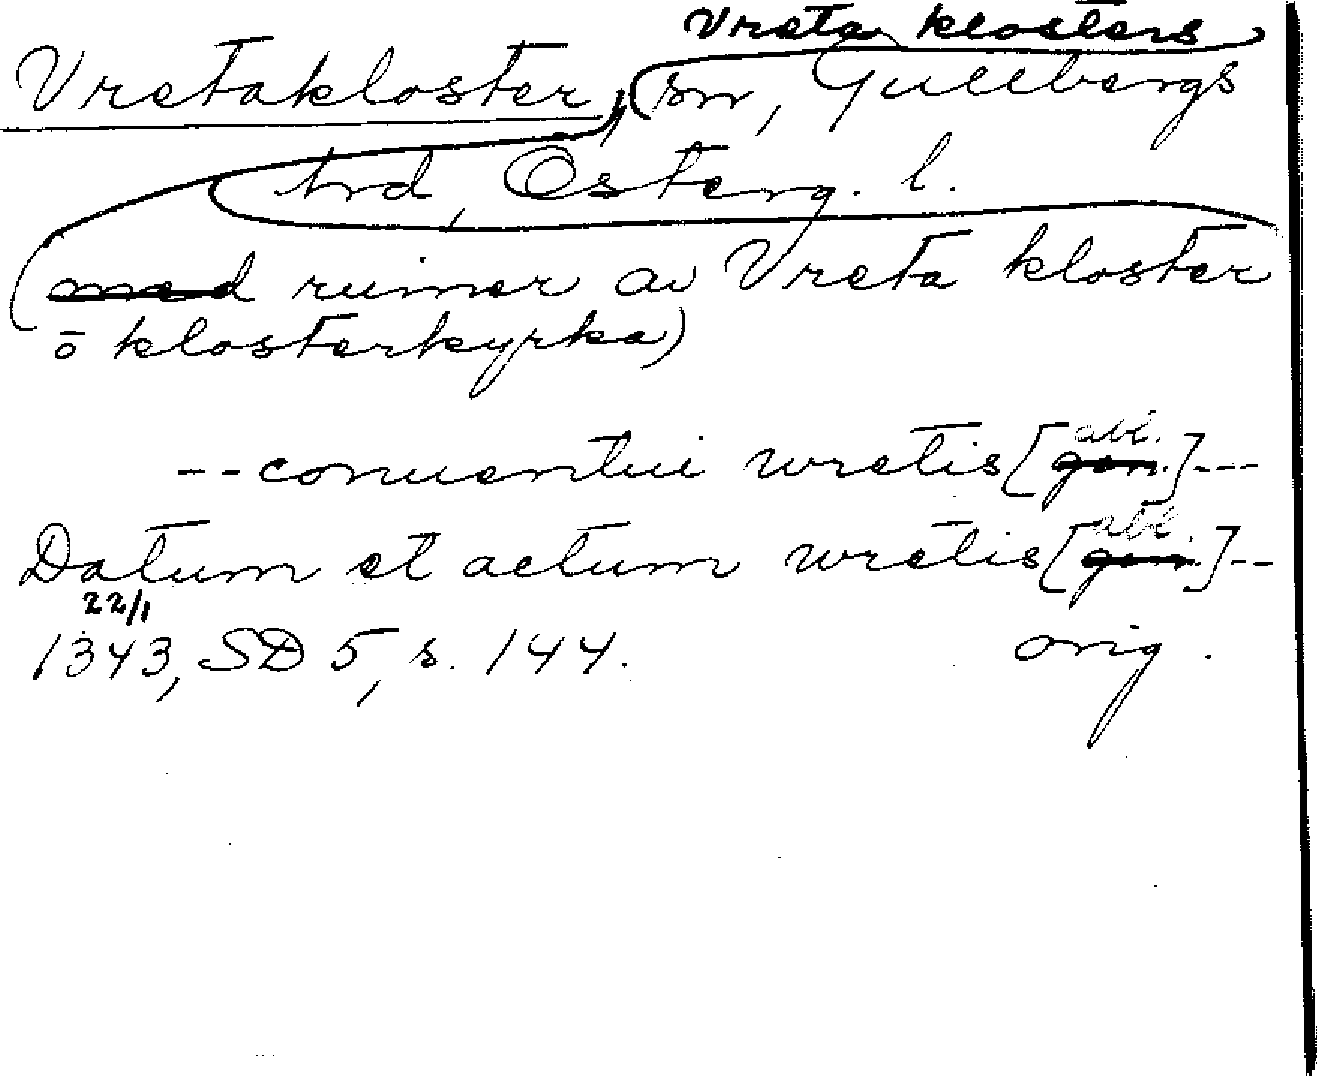 Vreta klosters
Vretakloster, sn, Gullbergs
hrd, Österg. l.
(med ruiner av Vreta kloster
o klosterkyrka)
abl.
-- conuentui wretis [gen.] ---
abl.
Datum et actum wretis [gen.] --
22/1
1343, SD 5, s. 144. orig.